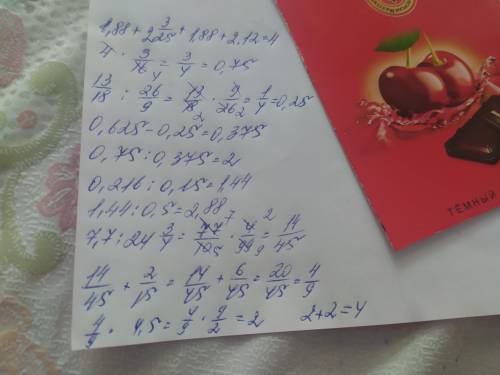 1,88+2 3/25 = 1,88+2.12=4
4 · 3/16 = 3/4 = 0,75
13/18 : 26/9 = 13/18 · 9/26 = 1/4 = 0,25
0,625-0,25=0,375
0,75:0,375=2
0,216:0,15=1,44
1,44:0,5=2,88
7,7:24 3/4 = 77/10 · 4/99 = 14/45
14/45 + 2/15 = 14/45 + 6/45 = 20/45 = 4/9
4/9 · 4,5 = 4/9 · 9/2 = 2 2+2=4
ТЁМНЫЙ